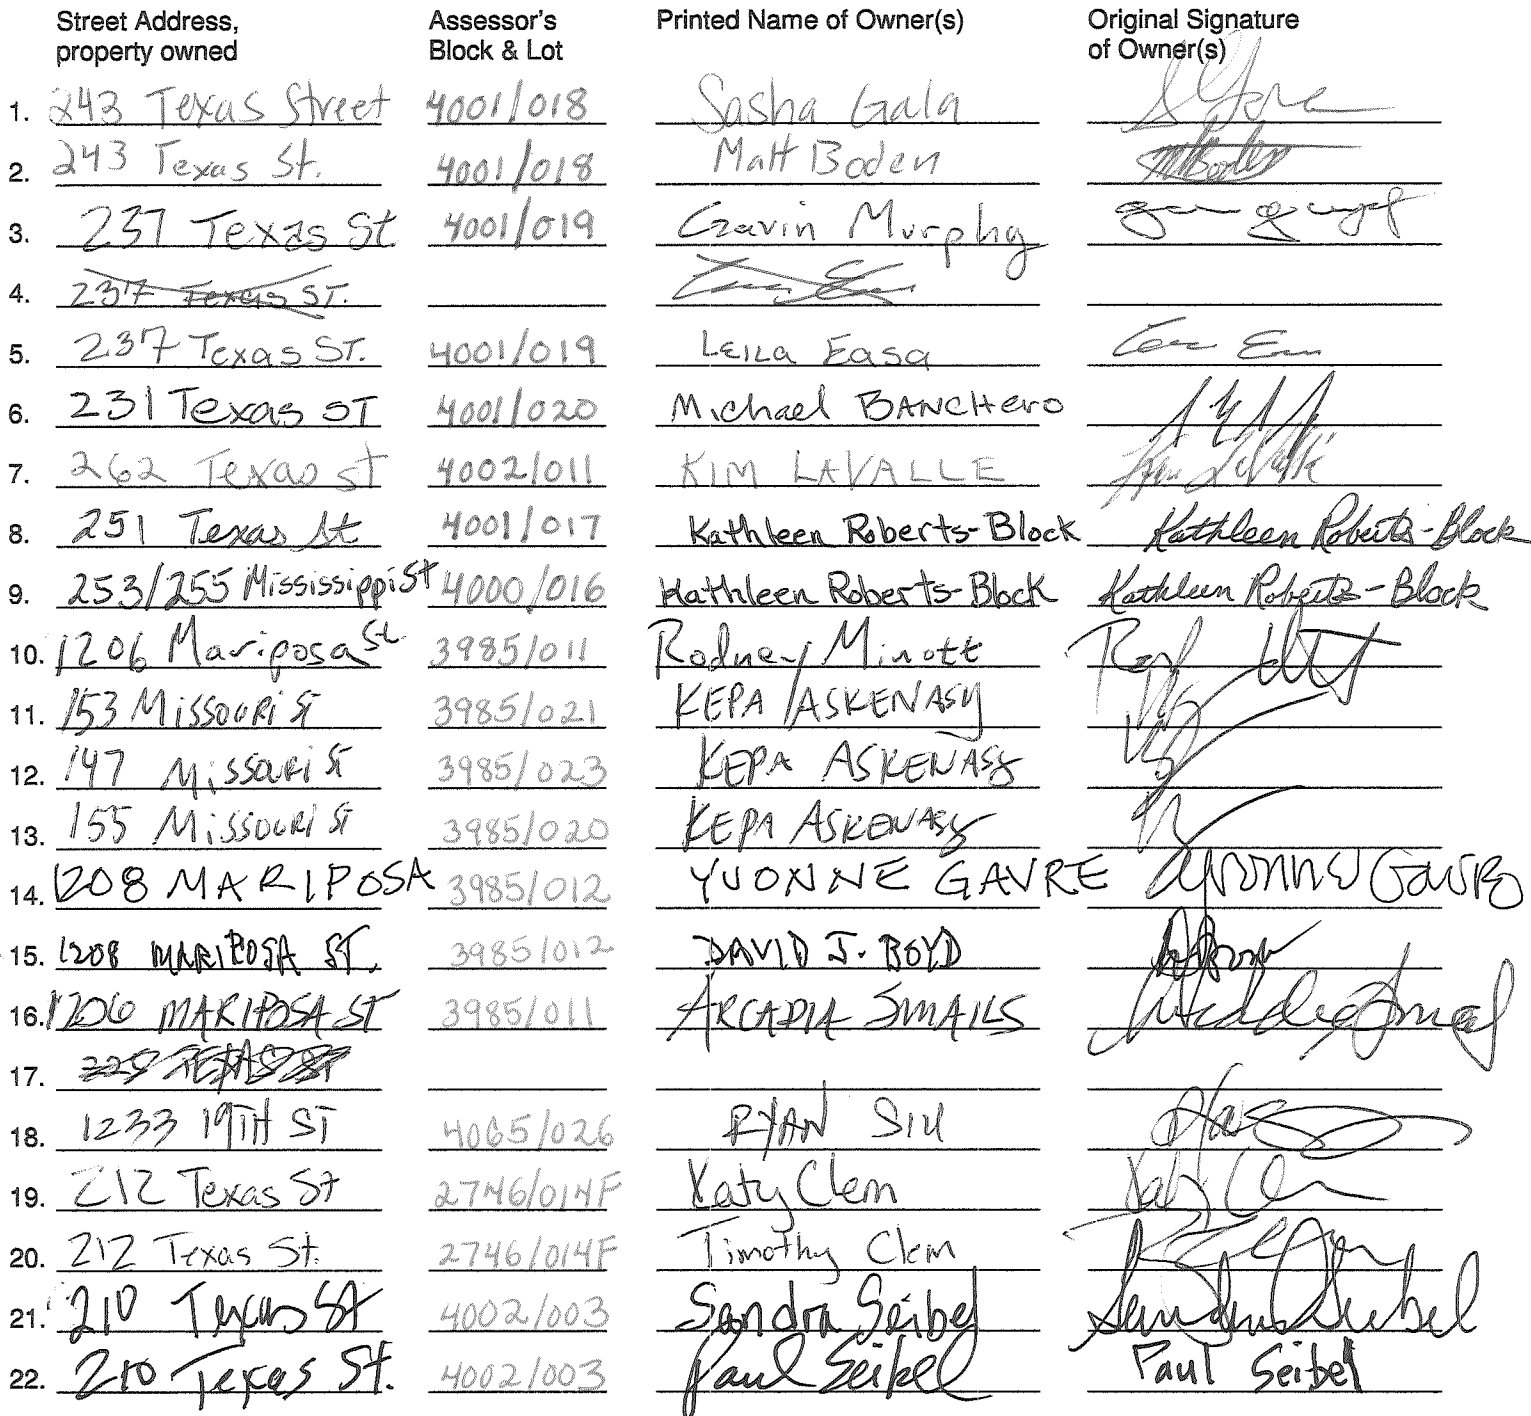 Street Address, property owned Assessor's Block & Lot Printed Name of Owner(s) Original Signature of Owner(s)
1. 243 Texas Street 4001/018 Sasha Gala
2. 243 Texas St. 4001/018 Matt Boden MBoden
3. 237 Texas St 4001/019 Gavin Murphy
4. 237 Texas ST.
5. 237 Texas ST. 4001/019 Leila Easa
6. 231 Texas ST 4001/020 Michael BANCHero
7. 262 Texas st 4002/011 KIM LAVALLE Kim LaValle
8. 251 Texas St 4001/017 Kathleen Roberts-Block Kathleen Roberts-Block
9. 253/255 Mississippi St 4000/016 Kathleen Roberts-Block Kathleen Roberts-Block
10. 1206 Mariposa St. 3985/011 Rodney Minott
11. 153 MISSOURI ST 3985/021 KEPA ASKENASY
12. 147 MISSOURI ST 3985/023 KEPA ASKENASY
13. 155 MISSOURI ST 3985/020 KEPA ASKENASY
14. 1208 MARIPOSA 3985/012 YVONNE GAVRE Yvonne Gavre
15. 1208 MARIPOSA ST. 3985/012 DAVID J. BOYD
16. 1206 MARIPOSA ST 3985/011 ARCADIA SMAILS
17. TEXAS ST
18. 1233 19TH ST 4065/026 RYAN SIU
19. 212 Texas St 2746/014F Katy Clem Katy Clem
20. 212 Texas St. 2746/014F Timothy Clem
21. 210 Texas St 4002/003 Sandra Seibel Sandra Seibel
22. 210 Texas St. 4002/003 Paul Seibel Paul Seibel